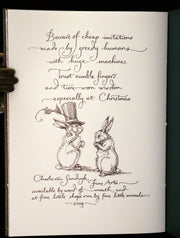 Beware of cheap imitations
made by greedy humans
with huge machines.
Trust nimble fingers
and time worn wisdom
especially at Christmas
Charles van Sandwyk Fine Arts
available by word of mouth, and
at fine little shops run by fine little animals